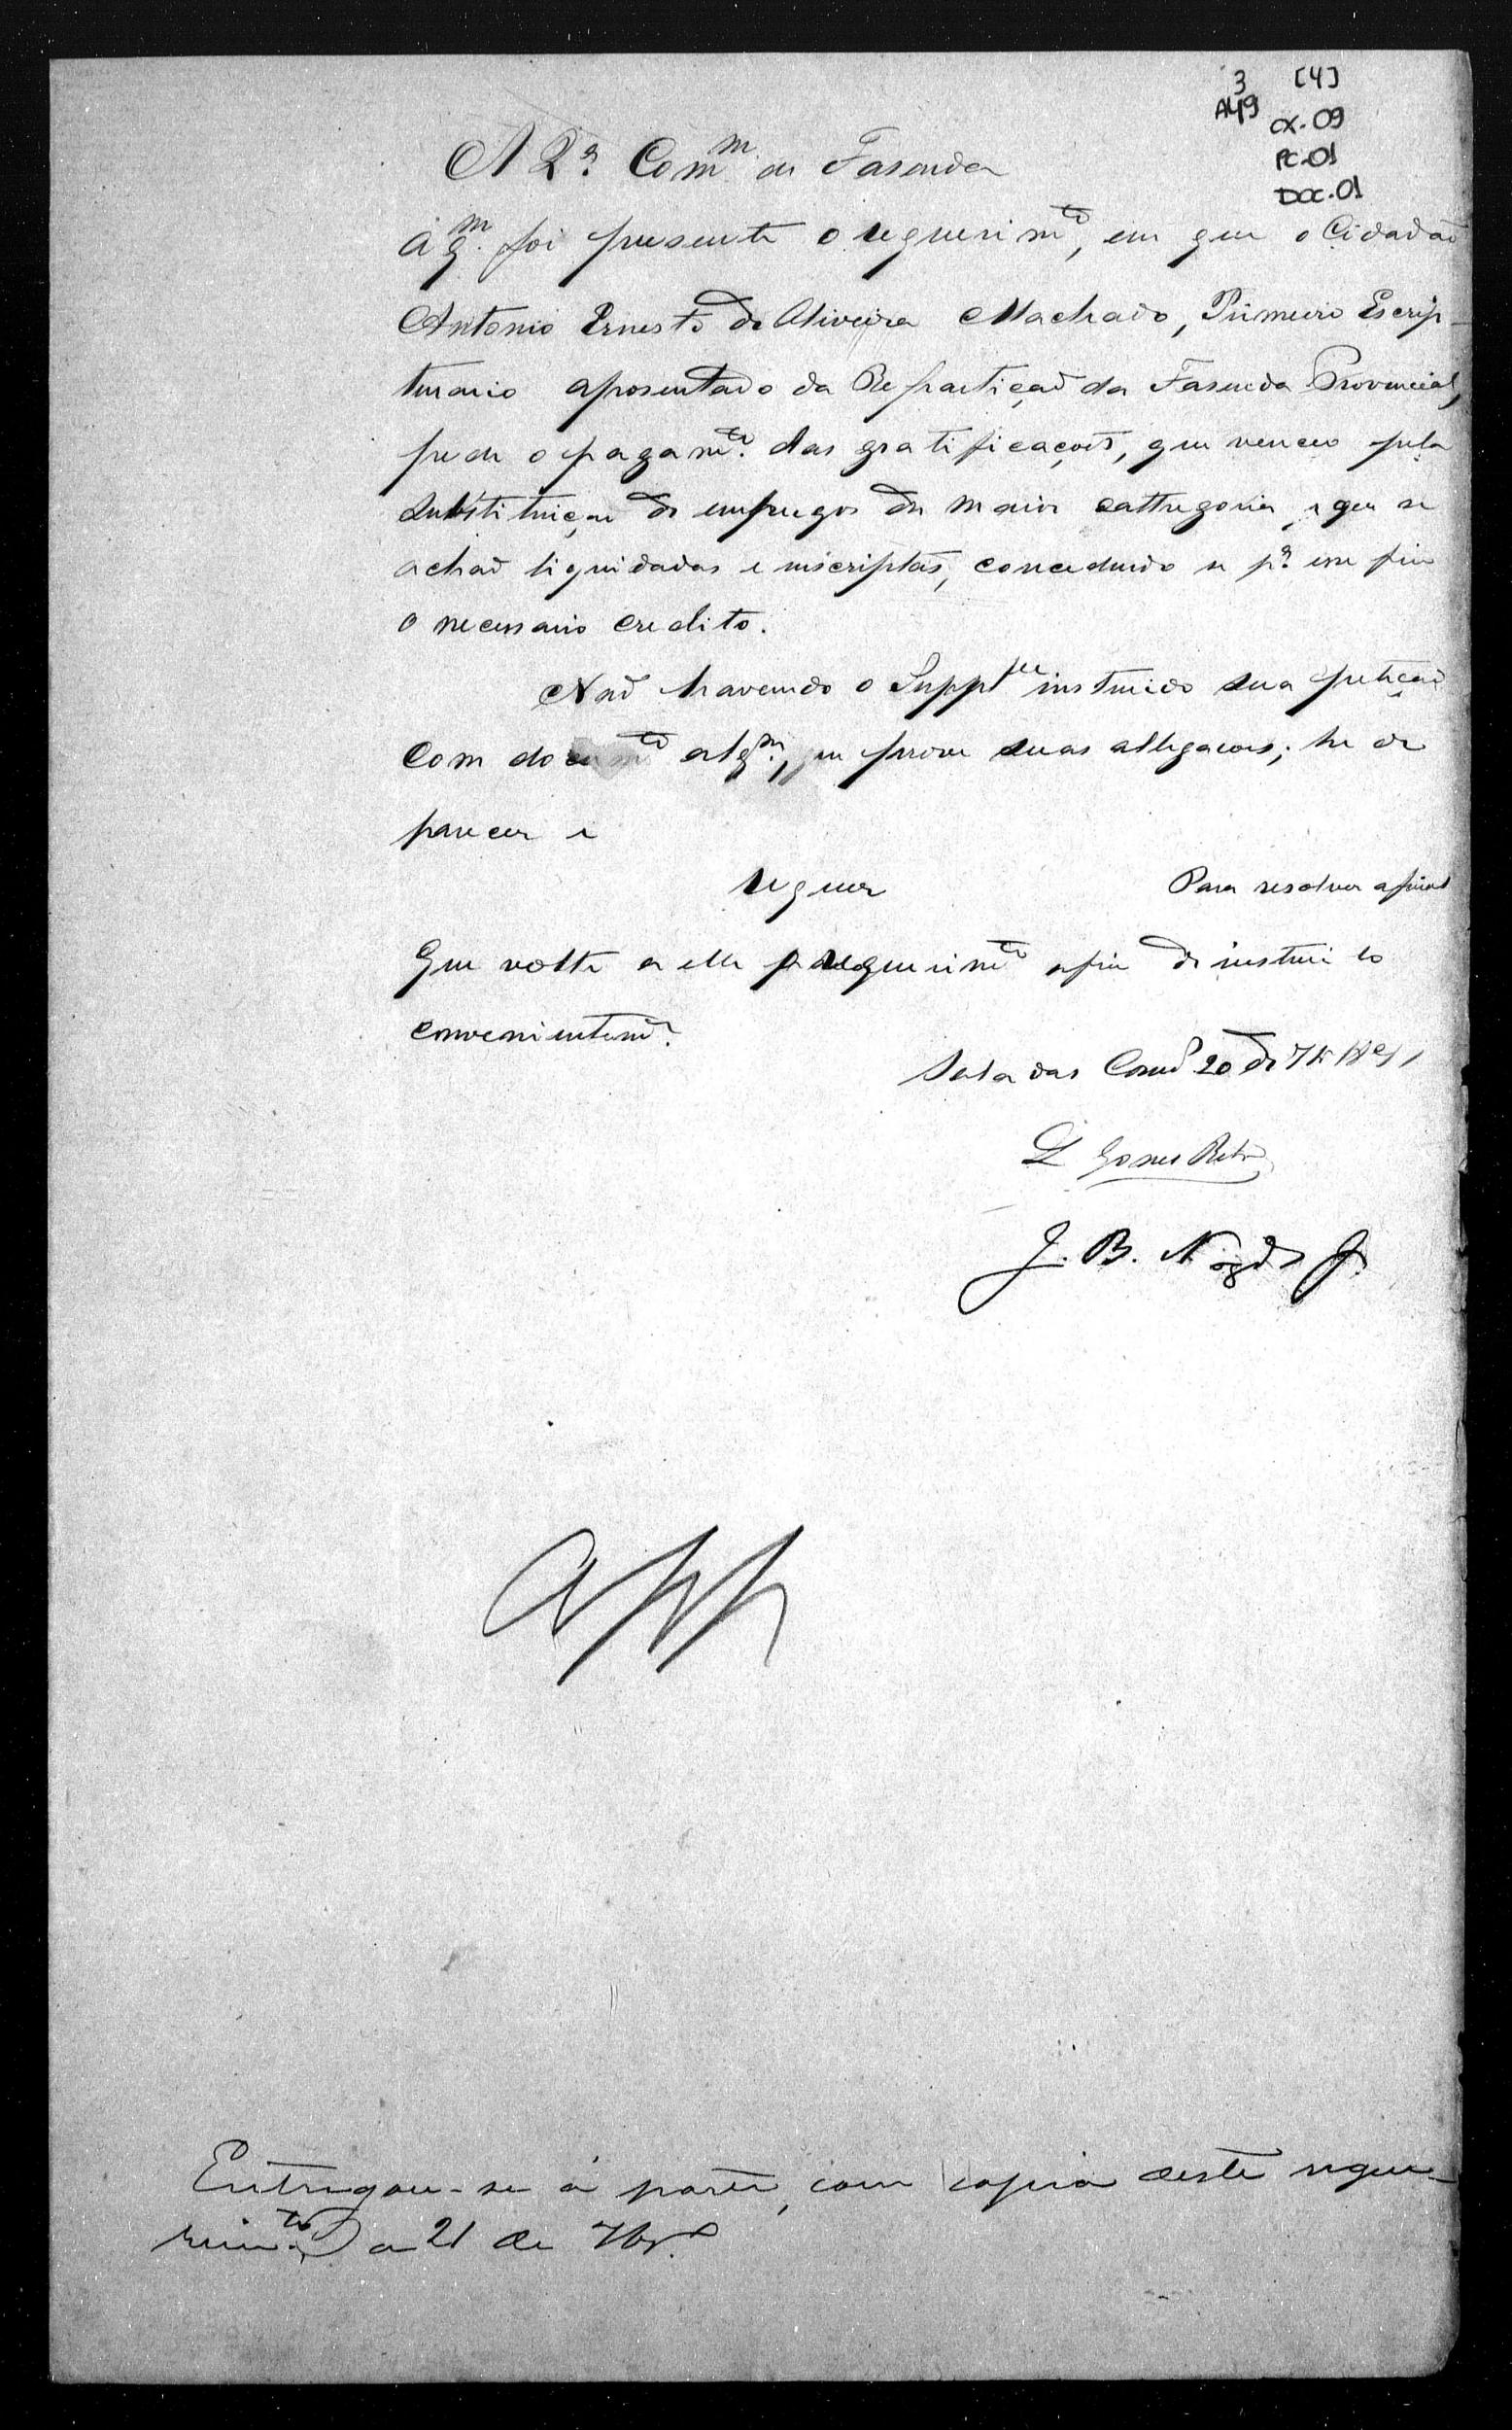 3 [4]
A49
CX. 09
PC. 01
DOC. 01
A 2ª Comm. de Fasenda
a qm. foi presente o requerimto, em que o Cidadaõ
Antonio Ernesto de Oliveira Machado, Primeiro Escrip-
turario aposentado da Repartiçaõ da Fasenda Provincial,
pede o pagamto. das gratificaçoẽs, que venceo pela
substituiçaõ de empregos de maior cathegoria, e que se
achaõ liquidadas e inscriptas, concedendo se pª esse fim
o necessario credito.
Naõ havendo o Suppte instruido sua petiçaõ
com documto algm., que prove suas allegacoes; he de
parecer e
requer Para resolver afinal
Que volte a elle requerimto afim de instrui lo
convenientemte.
Sala das Comes 20 de 7br 18
L Gomes
J. B. J.
App
Entregou-se á parte, com copia deste reque-
rimto. a 21 de 7br.